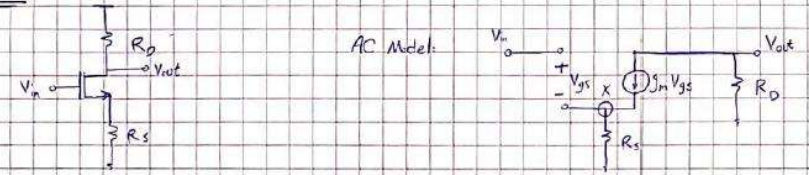 R_D
V_out
V_in
R_S
AC Model:
V_in
+
V_gs
-
X
g_m V_gs
V_out
R_D
R_S